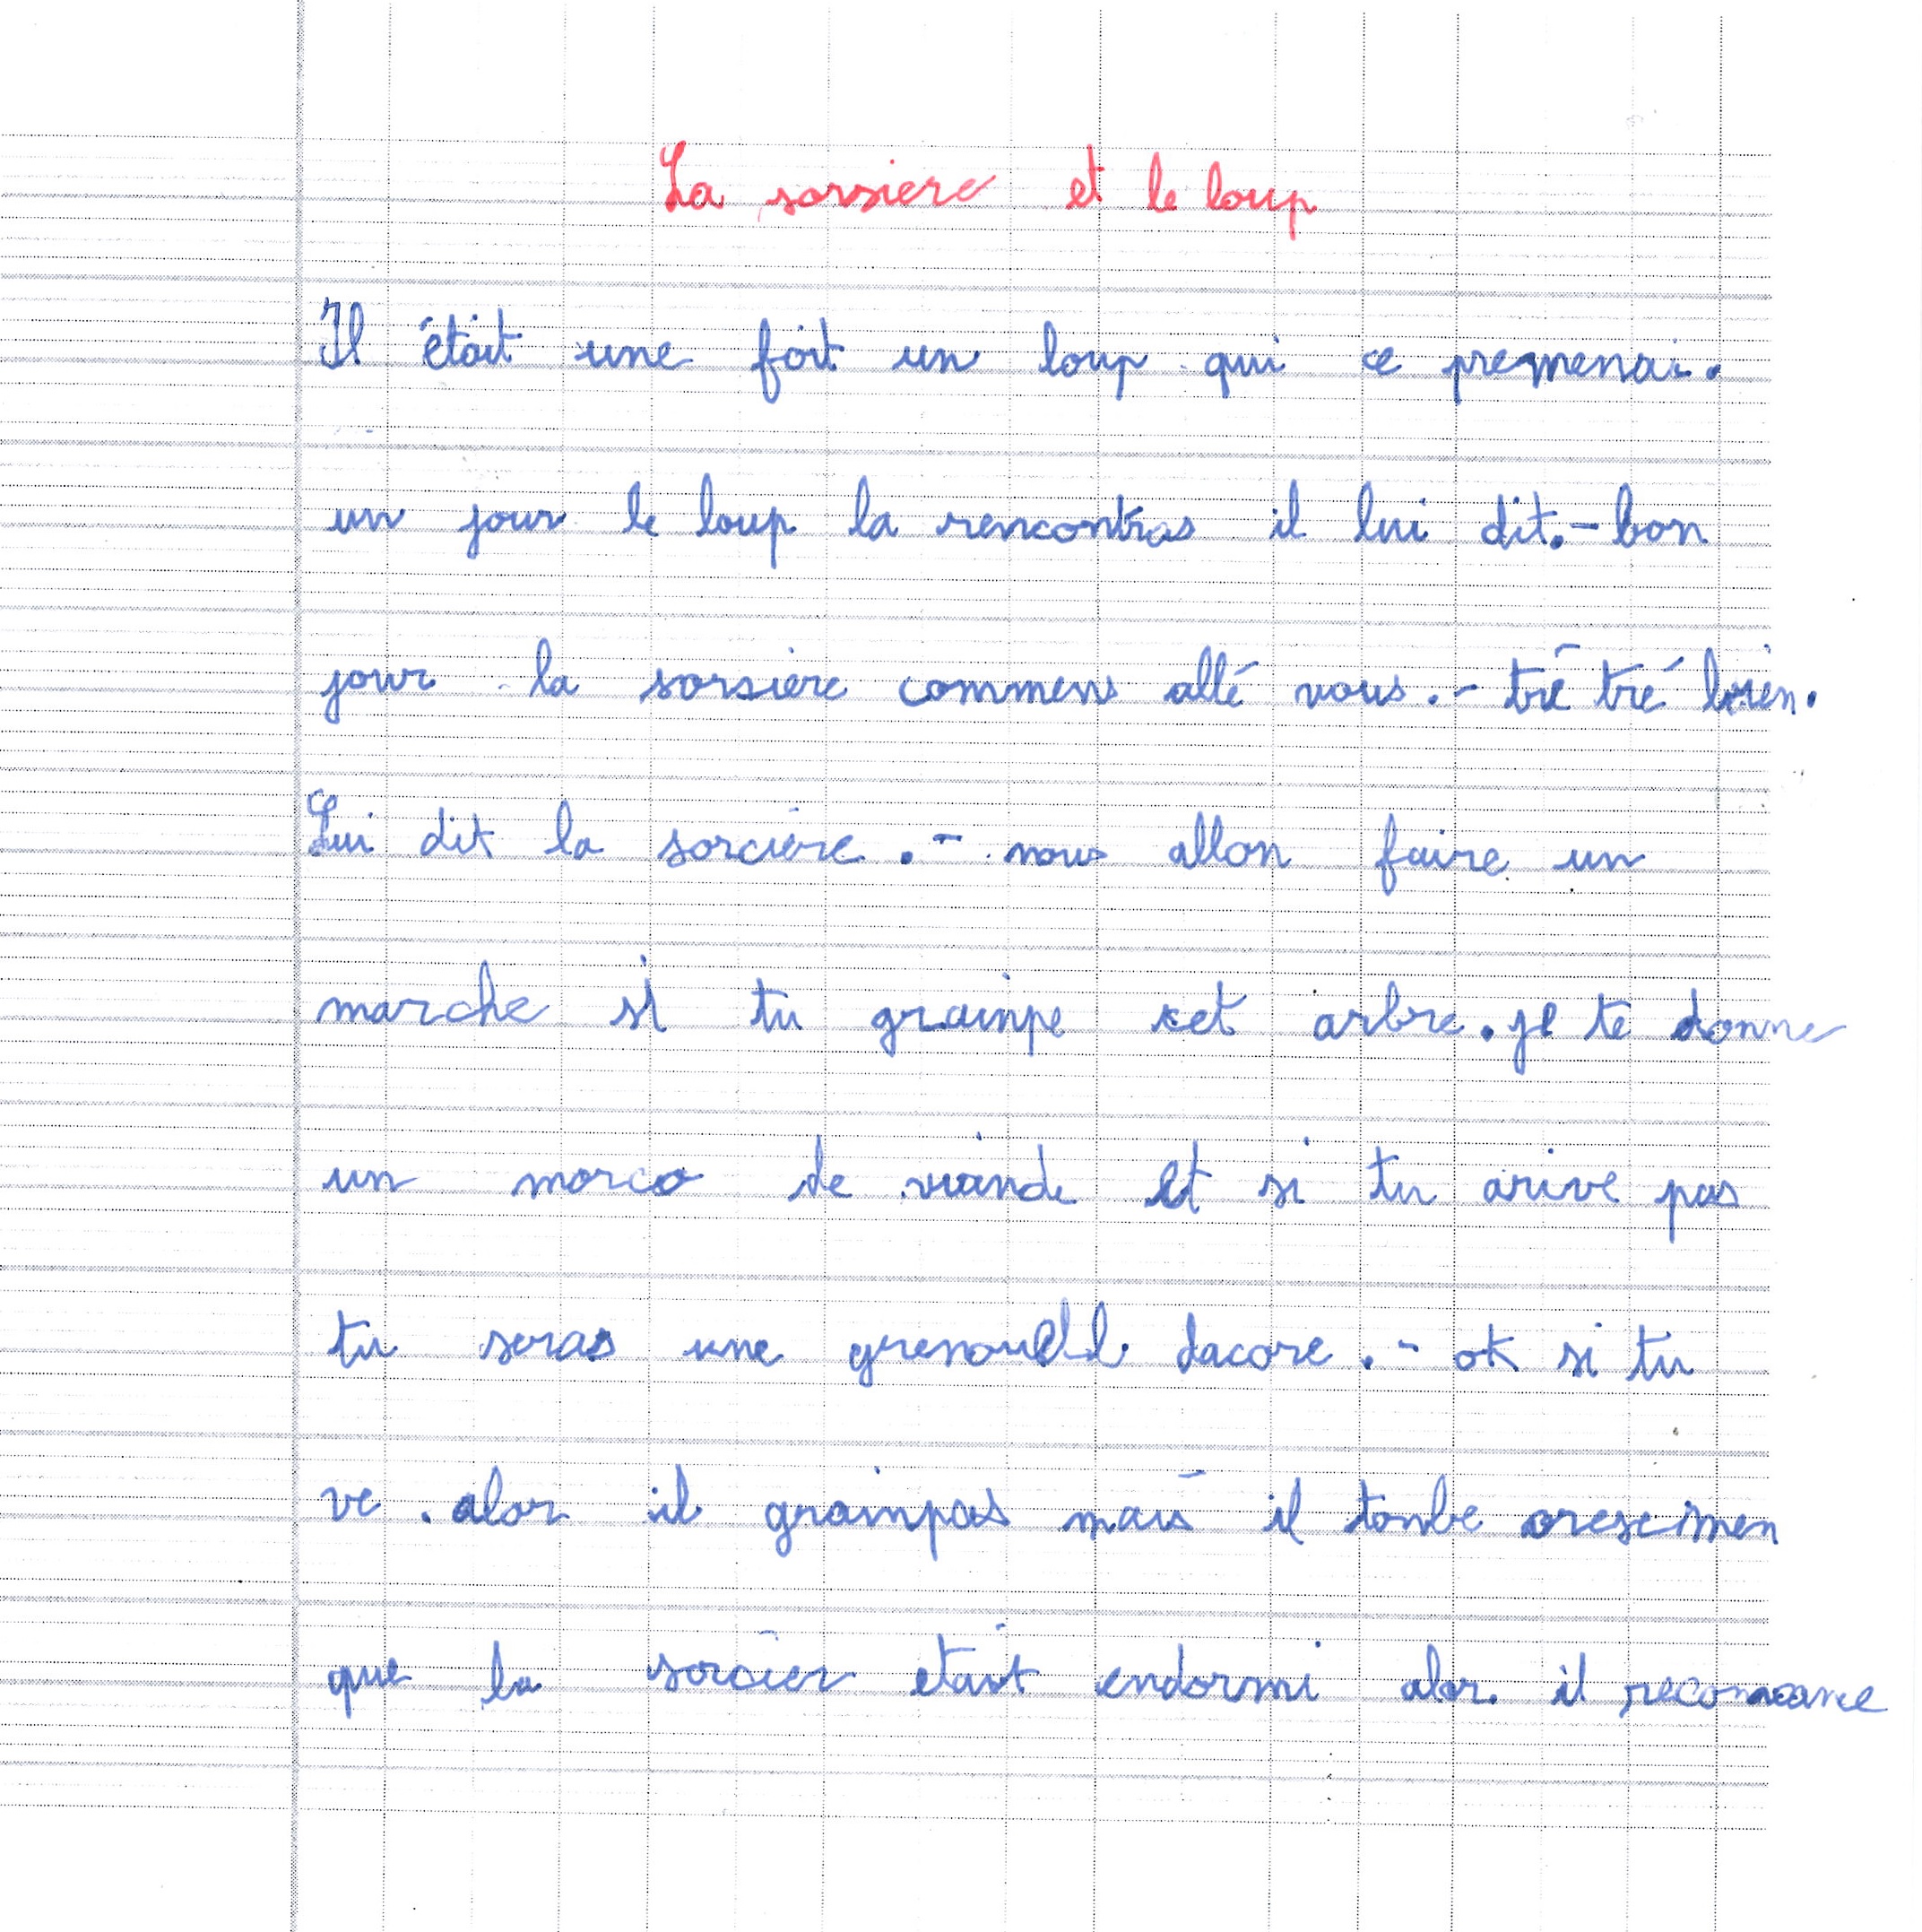 La sorsiere et le loup
Il était une foit un loup qui ce premenai.
un jour le loup la rencontras il lui dit.- bon
jour la sorsière commens allé vous.- tré tré bien.
Lui dit la sorcière.- nous allon faire un
marche si tu grainpe set arbre. je te donne
un morco de viande et si tu arive pas
tu seras une grenouell dacore.- ok si tu
ve. alor il grainpas mais il tombe
que la sorcier etait endormi alor il